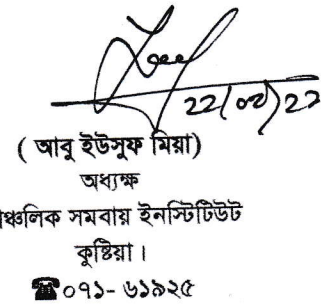 22/02/22
( আবু ইউসুফ মিয়া)
অধ্যক্ষ
ঞ্চলিক সমবায় ইনস্টিটিউট
কুষ্টিয়া ।
☎০৭১- ৬১৯২৫